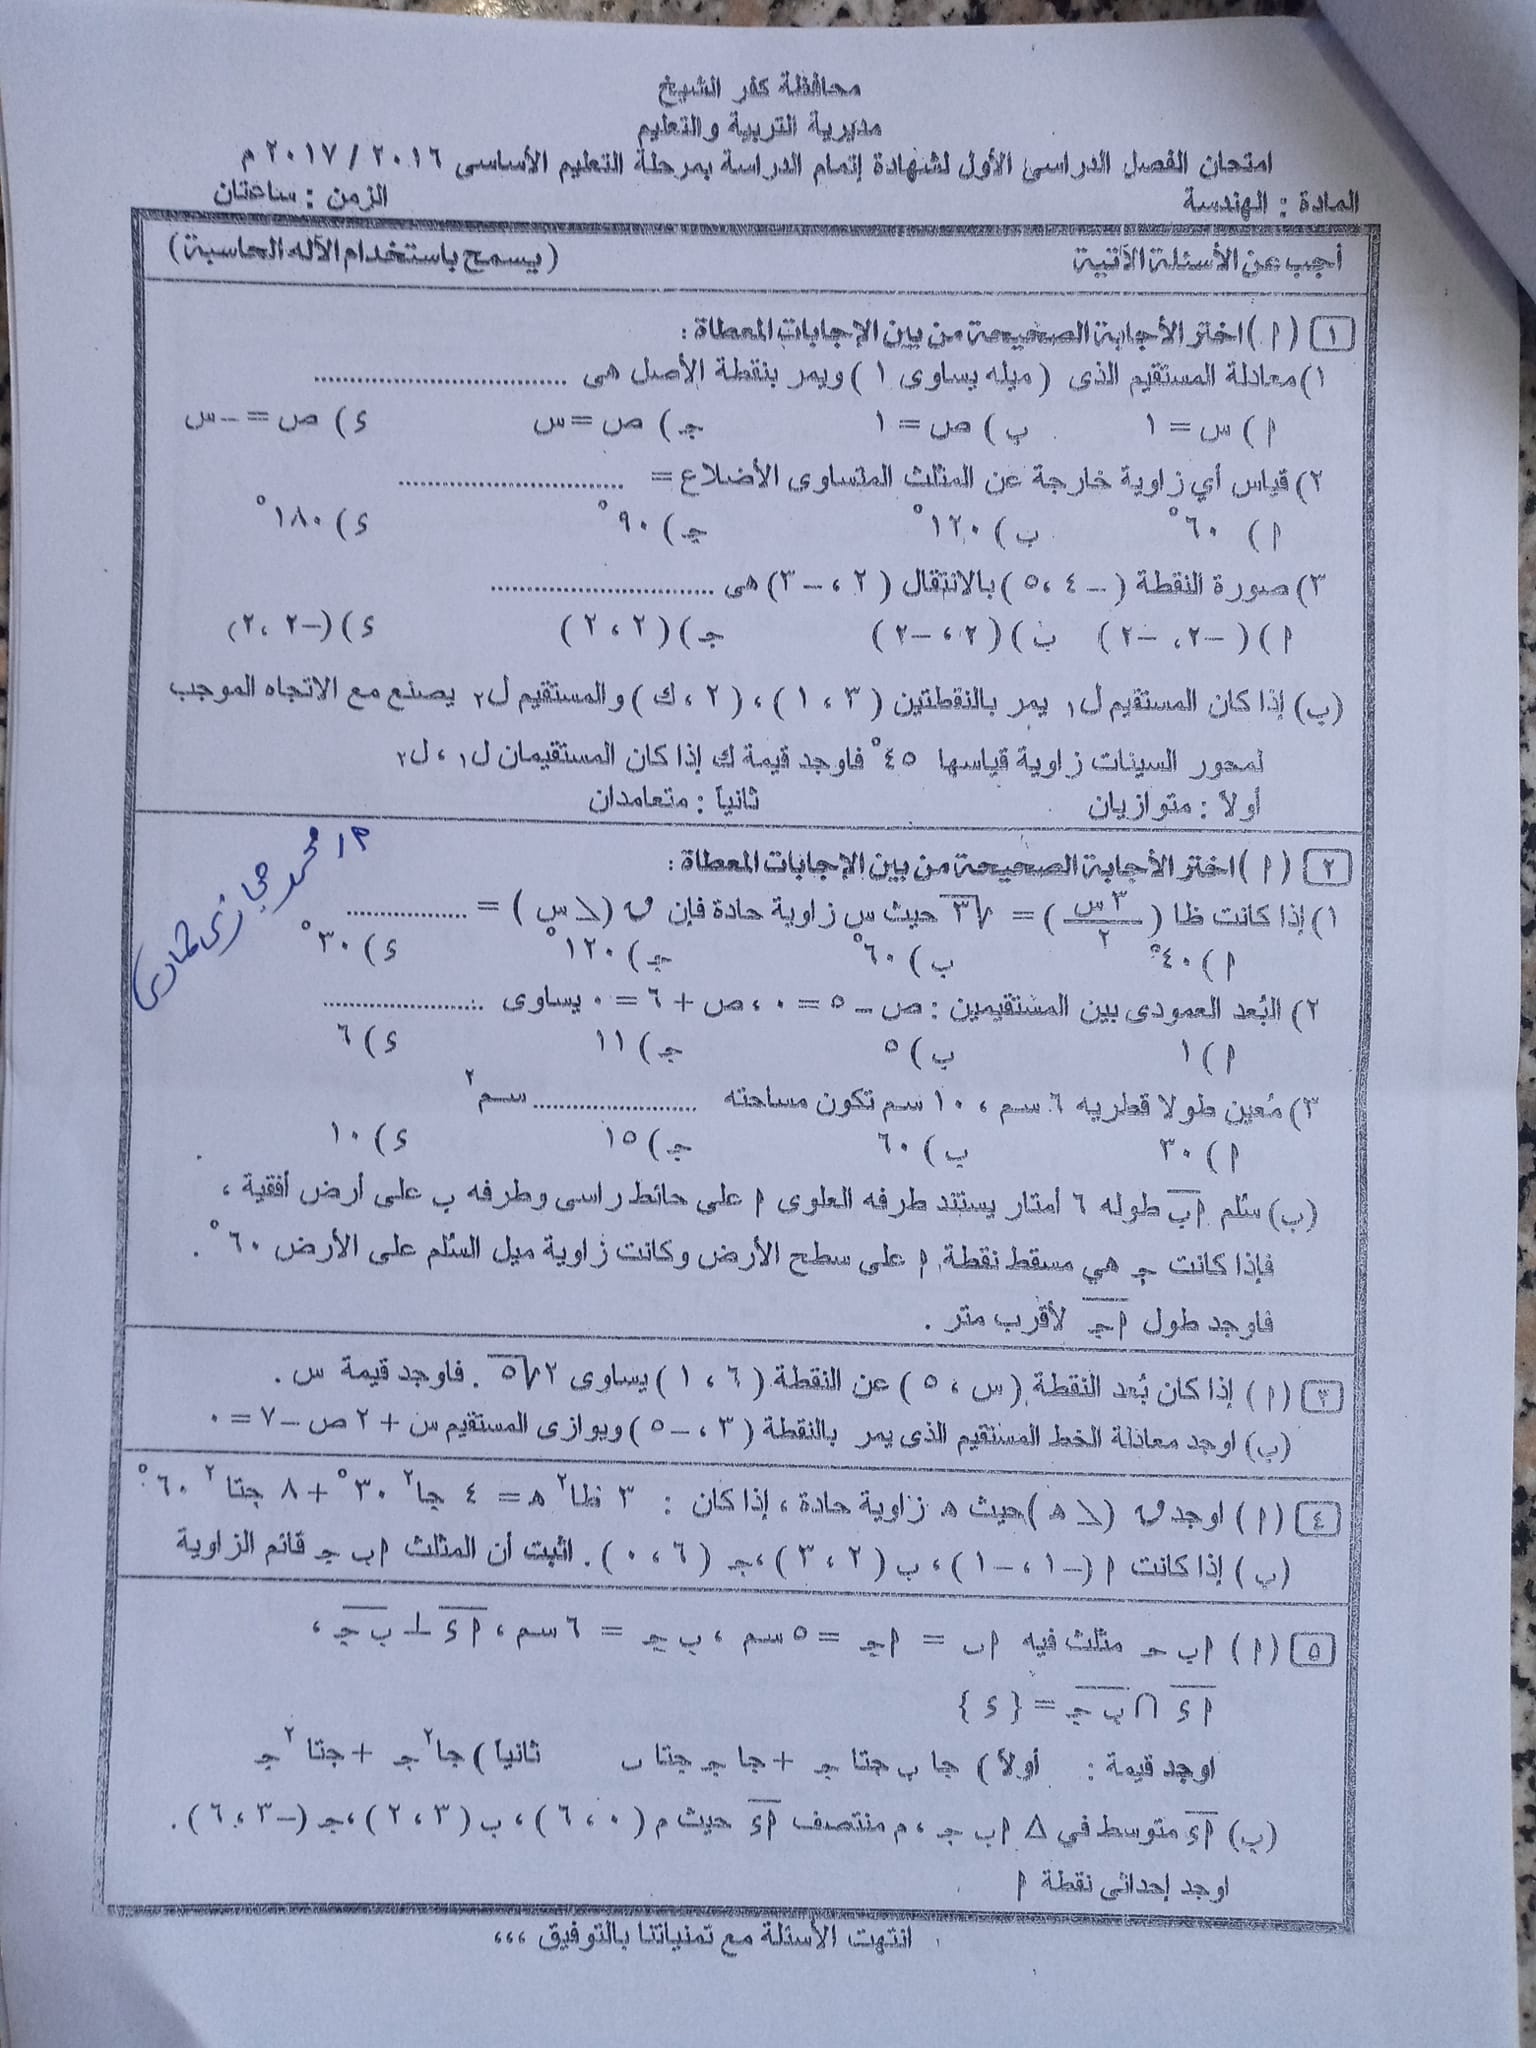 محافظة كفر الشيخ
مديرية التربية والتعليم
امتحان الفصل الدراسى الأول لشهادة إتمام الدراسة بمرحلة التعليم الأساسى ٢٠١٦ / ٢٠١٧ م
المادة : الهندسة الزمن : ساعتان
أجب عن الأسئلة الآتية (يسمح باستخدام الآله الحاسبة)
١ (أ) اختر الأجابة الصحيحة من بين الإجابات المعطاة :
١) معادلة المستقيم الذى (ميله يساوى ١) ويمر بنقطة الأصل هى ..............................
أ) س = ١ ب) ص = ١ جـ) ص = س ء) ص = –س
٢) قياس أي زاوية خارجة عن المثلث المتساوى الأضلاع = ..............................
أ) ٦٠° ب) ١٢٠° جـ) ٩٠° ء) ١٨٠°
٣) صورة النقطة (–٤ ، ٥) بالانتقال (٢ ، –٣) هى ..............................
أ) (–٢ ، –٢) ب) (٢ ، –٢) جـ) (٢ ، ٢) ء) (–٢ ، ٢)
(ب) إذا كان المستقيم ل١ يمر بالنقطتين (٣ ، ١) ، (٢ ، ك) والمستقيم ل٢ يصنع مع الاتجاه الموجب
لمحور السينات زاوية قياسها ٤٥° فاوجد قيمة ك إذا كان المستقيمان ل١ ، ل٢
أولاً : متوازيان ثانياً : متعامدان
٢ (أ) اختر الأجابة الصحيحة من بين الإجابات المعطاة :
١) إذا كانت ظا (٣س/٢) = √٣ حيث س زاوية حادة فإن ق (∠ س) = ................
أ) ٤٠° ب) ٦٠° جـ) ١٢٠° ء) ٣٠°
٢) البُعد العمودى بين المستقيمين : ص – ٥ = ٠ ، ص + ٦ = ٠ يساوى ......................
أ) ١ ب) ٥ جـ) ١١ ء) ٦
٣) مُعين طولا قطريه ٦ سم ، ١٠ سم تكون مساحته ...................... سم٢
أ) ٣٠ ب) ٦٠ جـ) ١٥ ء) ١٠
(ب) سُلم أب طوله ٦ أمتار يستند طرفه العلوى أ على حائط راسى وطرفه ب على أرض أفقية ،
فإذا كانت جـ هي مسقط نقطة أ على سطح الأرض وكانت زاوية ميل السُلم على الأرض ٦٠° .
فاوجد طول أجـ لأقرب متر .
٣ (أ) إذا كان بُعد النقطة (س ، ٥) عن النقطة (٦ ، ١) يساوى ٢√٥ . فاوجد قيمة س .
(ب) اوجد معادلة الخط المستقيم الذى يمر بالنقطة (٣ ، –٥) ويوازى المستقيم س + ٢ ص – ٧ = ٠
٤ (أ) اوجد ق (∠ هـ) حيث هـ زاوية حادة ، إذا كان : ٣ ظا٢ هـ = ٤ جا٢ ٣٠° + ٨ جتا٢ ٦٠°
(ب) إذا كانت أ (–١ ، –١) ، ب (٢ ، ٣) ، جـ (٦ ، ٠) . اثبت أن المثلث أ ب جـ قائم الزاوية
٥ (أ) أ ب جـ مثلث فيه أب = أجـ = ٥ سم ، ب جـ = ٦ سم ، أء ⊥ ب جـ ،
أء ∩ ب جـ = {ء}
اوجد قيمة : أولاً) جا ب جتا جـ + جا جـ جتا ب ثانياً) جا٢ جـ + جتا٢ جـ
(ب) أء متوسط في Δ أ ب جـ ، م منتصف أء حيث م (٠ ، ٦) ، ب (٣ ، ٢) ، جـ (–٣ ، ٦) .
اوجد إحداثى نقطة أ
انتهت الأسئلة مع تمنياتنا بالتوفيق ،،،
أ / محمد حجازى